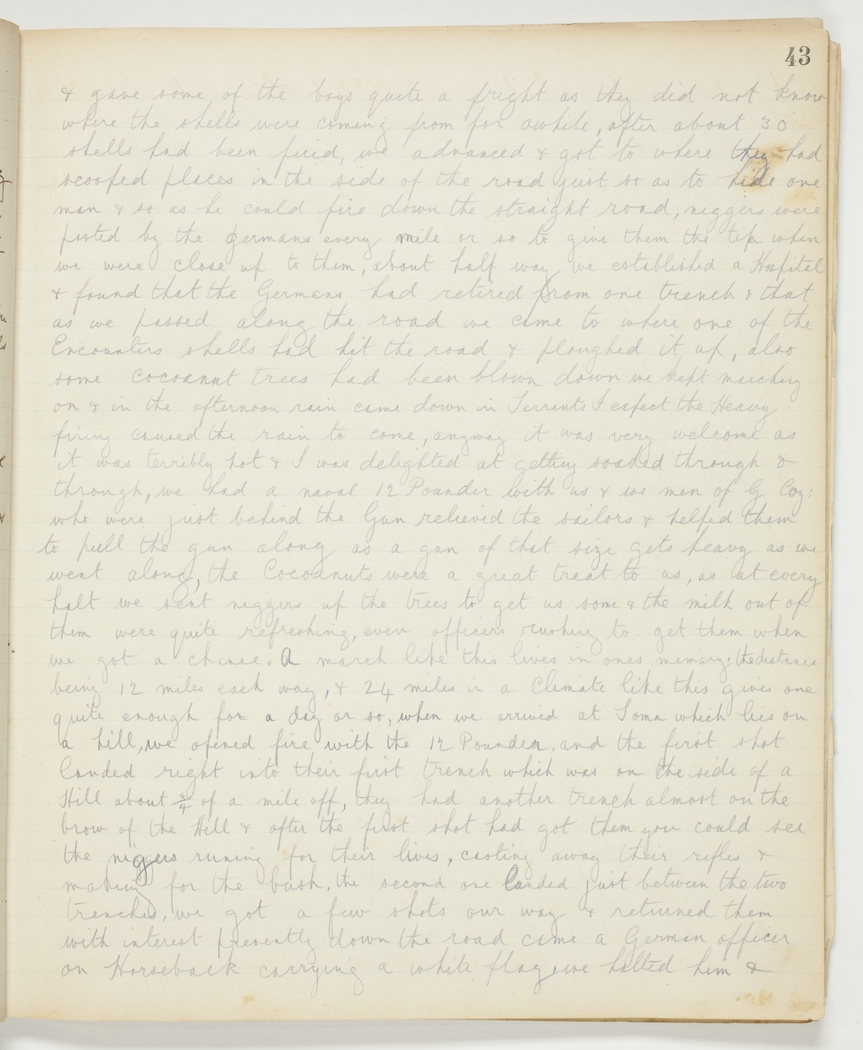 43
& gave some of the boys quite a fright as they did not know
where the shells were coming from for awhile, after about 30
shells had been fired, we advanced & got to where they had
scooped places in the side of the road just so as to hide one
man & so as he could fire down the straight road, niggers were
posted by the germans every mile or so to give them the tip when
we were close up to them, about half way we established a Hospital
& found that the Germans had retired from one trench & that
as we passed along the road we came to where one of the
Encounters shells had hit the road & ploughed it up, also
some cocoanut trees had been blown down we kept marching
on & in the afternoon rain came down in Torrents I expect the Heavy
firing caused the rain to come, anyway it was very welcome as
it was terribly hot & I was delighted at getting soaked through &
through, we had a naval 12 Pounder with us & we men of G Coy:
who were just behind the Gun relieved the sailors & helped them
to pull the gun along as a gun of that size gets heavy as we
went along, the Cocoanuts were a great treat to us, as at every
halt we sent niggers up the trees to get us some & the milk out of
them were quite refreshing, even officers rushing to get them when
we got a chance. A march like this lives in ones memory: the distance
being 12 miles each way, & 24 miles in a Climate like this gives one
quite enough for a day or so, when we arrived at Toma which lies on
a hill, we opened fire with the 12 Pounder, and the first shot
landed right into their first trench which was on the side of a
Hill about 3/4 of a mile off, they had another trench almost on the
brow of the Hill & after the first shot had got them you could see
the niggers runing for their lives, casting away their rifles &
making for the bush, the second one landed just between the two
trenches, we got a few shots our way & returned them
with interest presently down the road came a German officer
on Horseback carrying a white flag, we halted him &